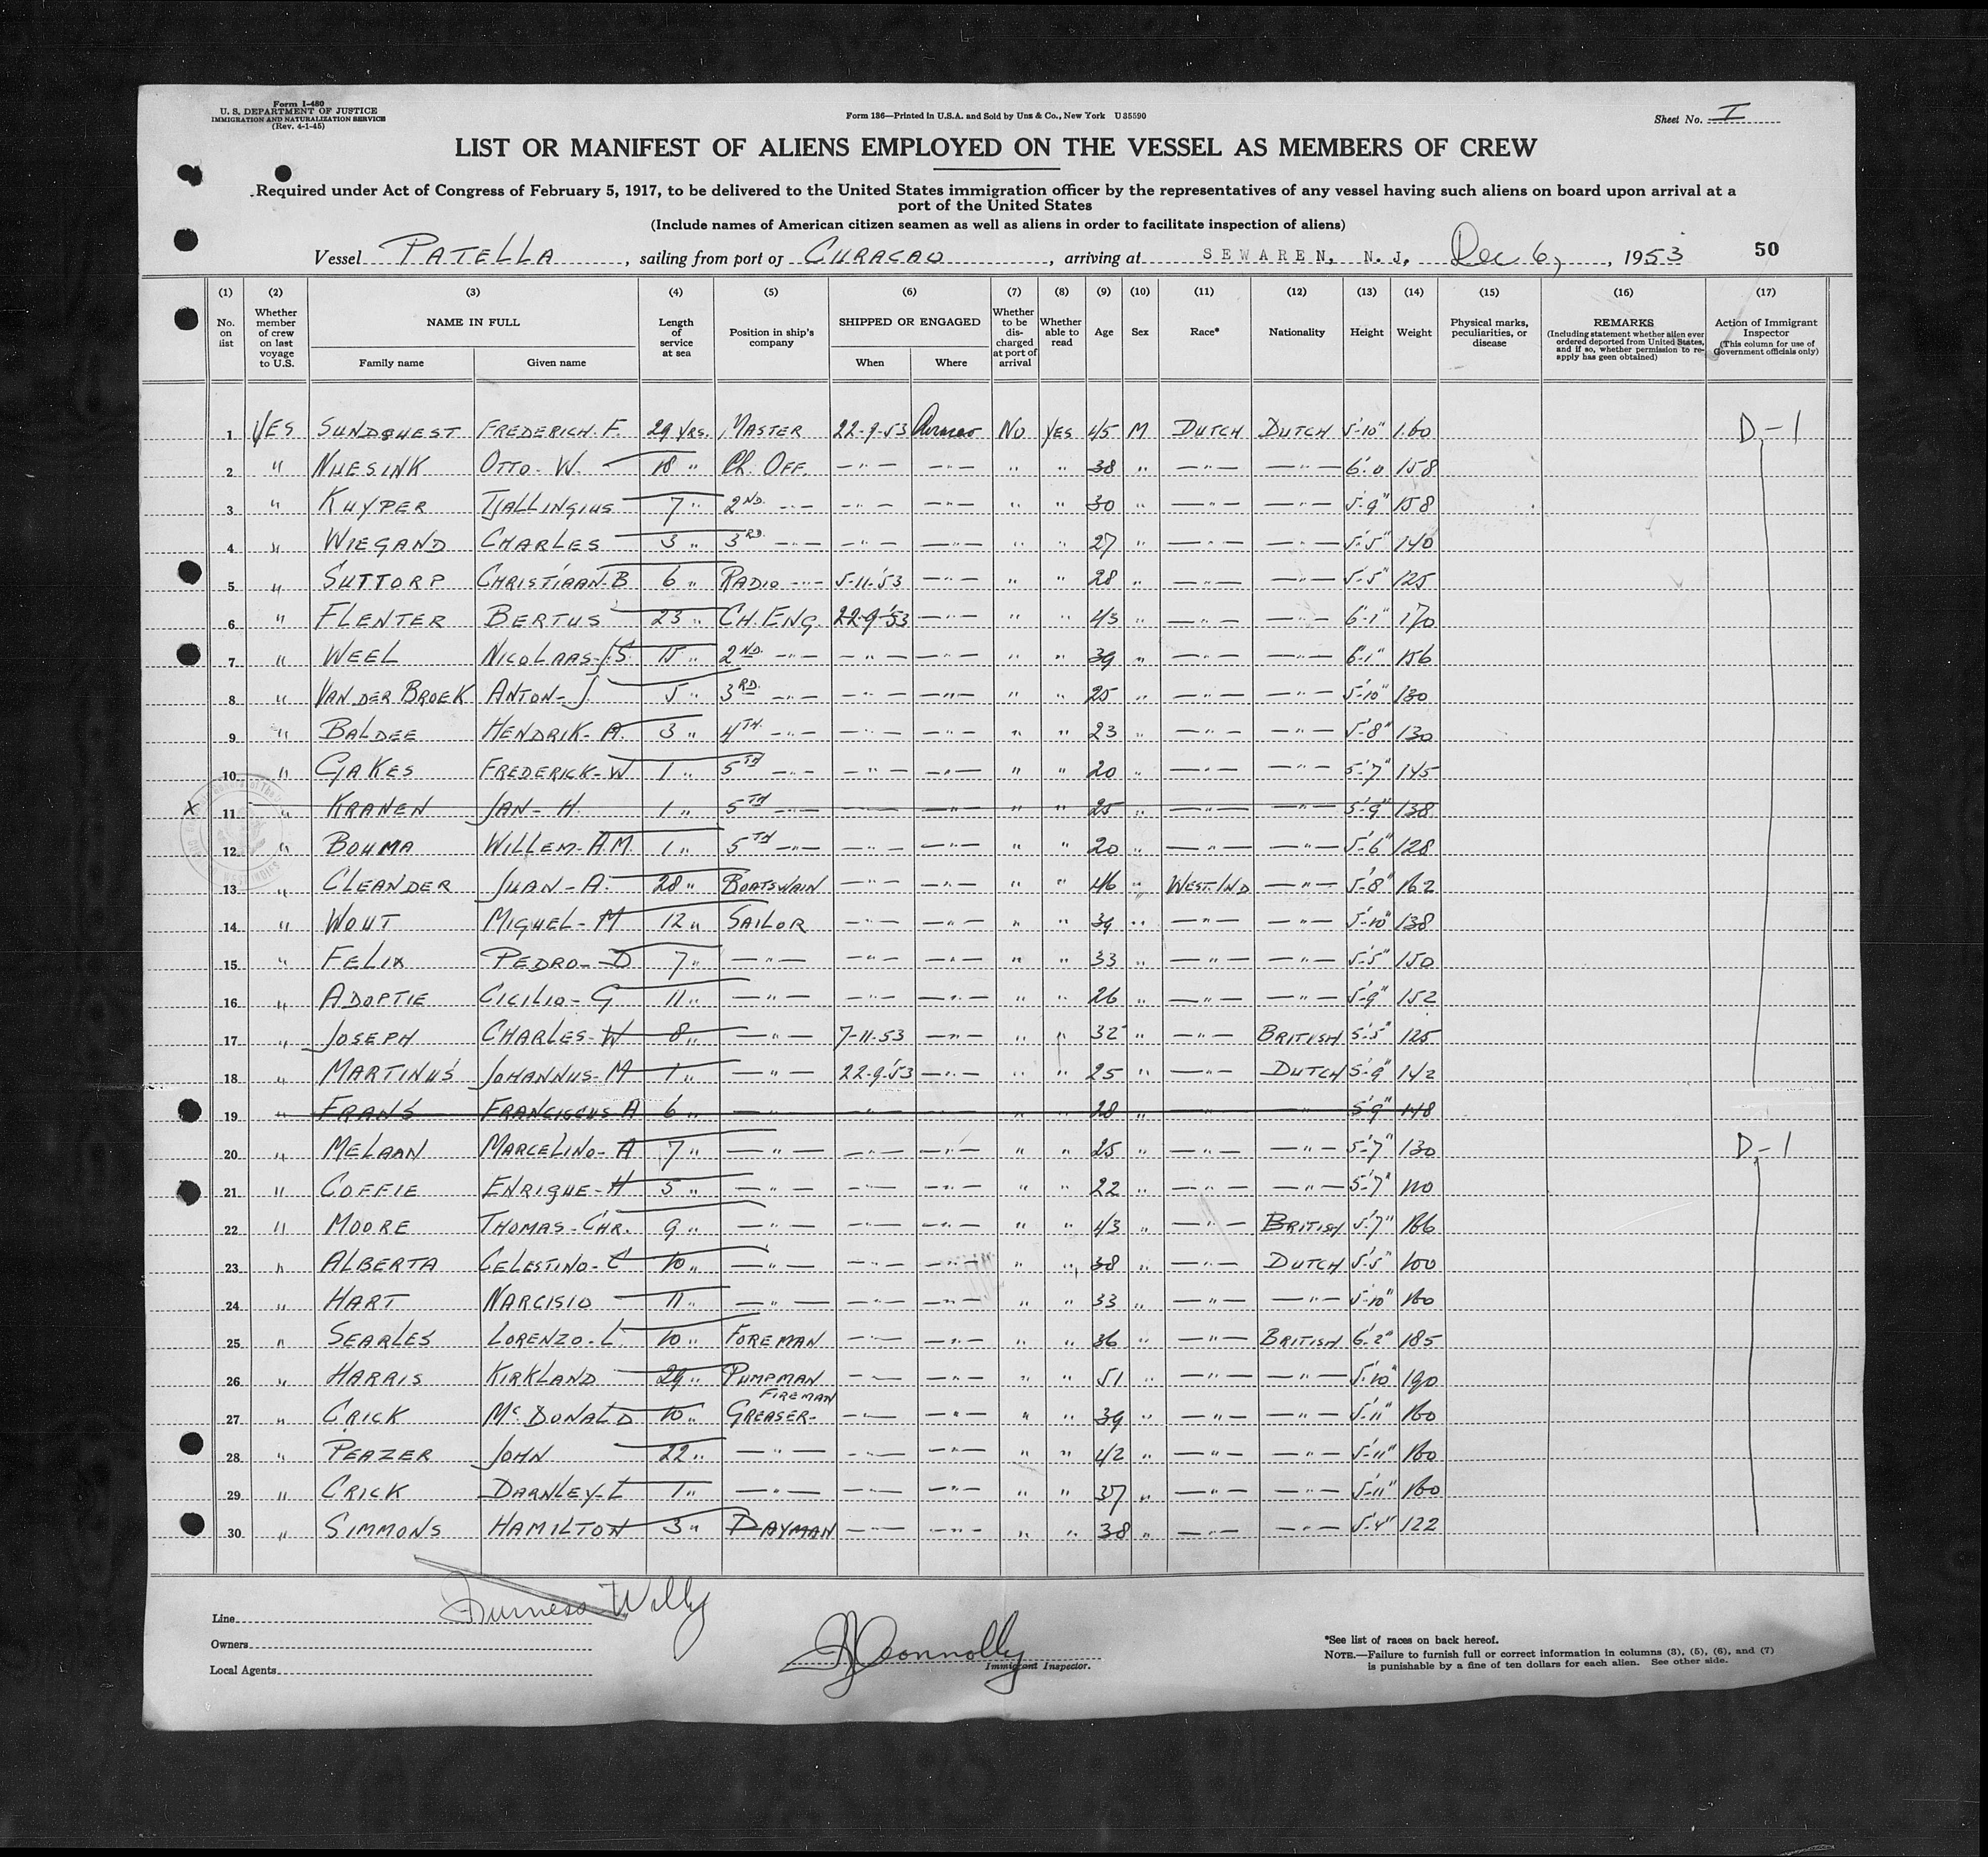 Form I-480
U. S. DEPARTMENT OF JUSTICE
IMMIGRATION AND NATURALIZATION SERVICE
(Rev. 4-1-45)
Form 136—Printed in U.S.A. and Sold by Unz & Co., New York U 35590
Sheet No. I
LIST OR MANIFEST OF ALIENS EMPLOYED ON THE VESSEL AS MEMBERS OF CREW
Required under Act of Congress of February 5, 1917, to be delivered to the United States immigration officer by the representatives of any vessel having such aliens on board upon arrival at a
port of the United States
(Include names of American citizen seamen as well as aliens in order to facilitate inspection of aliens)
Vessel PATELLA, sailing from port of CURACAO, arriving at SEWAREN, N. J, Dec 6, 1953 50
(1) (2) (3) (4) (5) (6) (7) (8) (9) (10) (11) (12) (13) (14) (15) (16) (17)
No. on list Whether member of crew on last voyage to U.S. NAME IN FULL Family name Given name Length of service at sea Position in ship's company SHIPPED OR ENGAGED When Where Whether to be discharged at port of arrival Whether able to read Age Sex Race* Nationality Height Weight Physical marks, peculiarities, or disease REMARKS (Including statement whether alien ever ordered deported from United States, and if so, whether permission to re-apply has geen obtained) Action of Immigrant Inspector (This column for use of Government officials only)
1 YES SUNDQUEST FREDERICH. F. 29 YRS. MASTER 22-9-53 Curacao NO YES 45 M DUTCH DUTCH 5-10" 160 D-1
2 " NUESINK OTTO-W. 18 " Ch. OFF. —"— —"— " " 38 " —"— —"— 6'0 158
3 " KUYPER TJALLINGIUS 7 " 2ND —"— —"— —"— " " 30 " —"— —"— 5-9" 158
4 " WIEGAND CHARLES 3 " 3RD —"— —"— —"— " " 27 " —"— —"— 5'-5" 140
5 " SUTTORP CHRISTIAAN-B 6 " RADIO —"— 5-11-53 —"— " " 28 " —"— —"— 5'-5" 125
6 " FLENTER BERTUS 23 " CH. ENG. 22-9-53 —"— " " 43 " —"— —"— 6'-1" 170
7 " WEEL NICOLAAS-J.S. 15 " 2ND —"— —"— —"— " " 39 " —"— —"— 6'-1" 156
8 " VAN DER BROEK ANTON-J. 5 " 3RD. —"— —"— —"— " " 25 " —"— —"— 5'-10" 130
9 " BALDEE HENDRIK-A. 3 " 4TH. —"— —"— —"— " " 23 " —"— —"— 5'-8" 130
10 " GAKES FREDERICK-W 1 " 5TH —"— —"— —"— " " 20 " —"— —"— 5'-7" 145
X 11 " KRANEN JAN-H. 1 " 5TH —"— —"— —"— " " 25 " —"— —"— 5'-9" 138
12 " BOUMA WILLEM-A.M. 1 " 5TH —"— —"— —"— " " 20 " —"— —"— 5'-6" 128
13 " CLEANDER JUAN-A. 28 " BOATSWAIN —"— —"— " " 46 " WEST.IND —"— 5'-8" 162
14 " WOUT MIGUEL-M 12 " SAILOR —"— —"— " " 39 " —"— —"— 5'-10" 138
15 " FELIX PEDRO-D 7 " —"— —"— —"— " " 33 " —"— —"— 5'-5" 150
16 " ADOPTIE CICILIO-G 11 " —"— —"— —"— " " 26 " —"— —"— 5'-9" 152
17 " JOSEPH CHARLES-W 8 " —"— 7-11-53 —"— " " 32 " —"— BRITISH 5'-5" 125
18 " MARTINUS JOHANNUS-M 1 " —"— 22-9-53 —"— " " 25 " —"— DUTCH 5'-9" 142
19 " FRANS FRANCISCUS A 6 " —"— —"— —"— " " 28 " —"— —"— 5'9" 148
20 " MELAAN MARCELINO-A 7 " —"— —"— —"— " " 25 " —"— —"— 5'-7" 130 D-1
21 " COFFIE ENRIQUE-H 5 " —"— —"— —"— " " 22 " —"— —"— 5'-7" 110
22 " MOORE THOMAS-CHR. 9 " —"— —"— —"— " " 43 " —"— BRITISH 5'-7" 166
23 " ALBERTA CELESTINO-C 10 " —"— —"— —"— " " 38 " —"— DUTCH 5'-5" 100
24 " HART NARCISIO 11 " —"— —"— —"— " " 33 " —"— —"— 5'-10" 160
25 " SEARLES LORENZO-L. 10 " FOREMAN —"— —"— " " 36 " —"— BRITISH 6'-2" 185
26 " HARRIS KIRKLAND 29 " PUMPMAN —"— —"— " " 51 " —"— —"— 5'-10" 190
27 " CRICK McDONALD 10 " FIREMAN GREASER- —"— —"— " " 39 " —"— —"— 5'-11" 160
28 " PEAZER JOHN 22 " —"— —"— —"— " " 42 " —"— —"— 5'-11" 160
29 " CRICK DARNLEY-L 1 " —"— —"— —"— " " 37 " —"— —"— 5'-11" 160
30 " SIMMONS HAMILTON 3 " DAYMAN —"— —"— " " 38 " —"— —"— 5'-4" 122
Line Furness Willy
Owners
Local Agents
Connolly
Immigrant Inspector.
*See list of races on back hereof.
NOTE.—Failure to furnish full or correct information in columns (3), (5), (6), and (7)
is punishable by a fine of ten dollars for each alien. See other side.